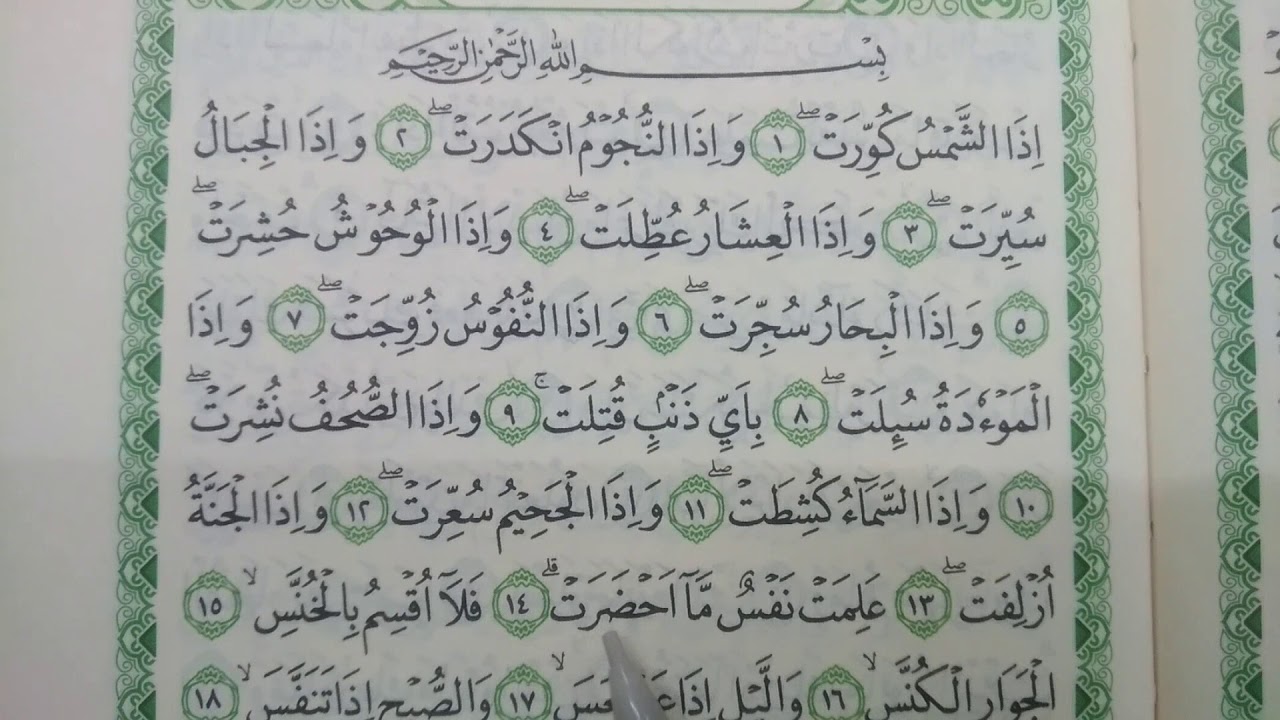 بِسْمِ اللّٰهِ الرَّحْمٰنِ الرَّحِيْمِ
اِذَا الشَّمْسُ كُوِّرَتْۖ ١ وَاِذَا النُّجُوْمُ انْكَدَرَتْۖ ٢ وَاِذَا الْجِبَالُ
سُيِّرَتْۖ ٣ وَاِذَا الْعِشَارُ عُطِّلَتْۖ ٤ وَاِذَا الْوُحُوْشُ حُشِرَتْۖ
٥ وَاِذَا الْبِحَارُ سُجِّرَتْۖ ٦ وَاِذَا النُّفُوْسُ زُوِّجَتْۖ ٧ وَاِذَا
الْمَوْءٗدَةُ سُىِٕلَتْۖ ٨ بِاَيِّ ذَنْۢبٍ قُتِلَتْۚ ٩ وَاِذَا الصُّحُفُ نُشِرَتْۖ
١٠ وَاِذَا السَّمَاۤءُ كُشِطَتْۖ ١١ وَاِذَا الْجَحِيْمُ سُعِّرَتْۖ ١٢ وَاِذَا الْجَنَّةُ
اُزْلِفَتْۖ ١٣ عَلِمَتْ نَفْسٌ مَّآ اَحْضَرَتْۗ ١٤ فَلَآ اُقْسِمُ بِالْخُنَّسِۙ ١٥
الْجَوَارِ الْكُنَّسِۙ ١٦ وَالَّيْلِ اِذَا ۙ ١٧ وَالصُّبْحِ اِذَا تَنَفَّسَۙ ١٨